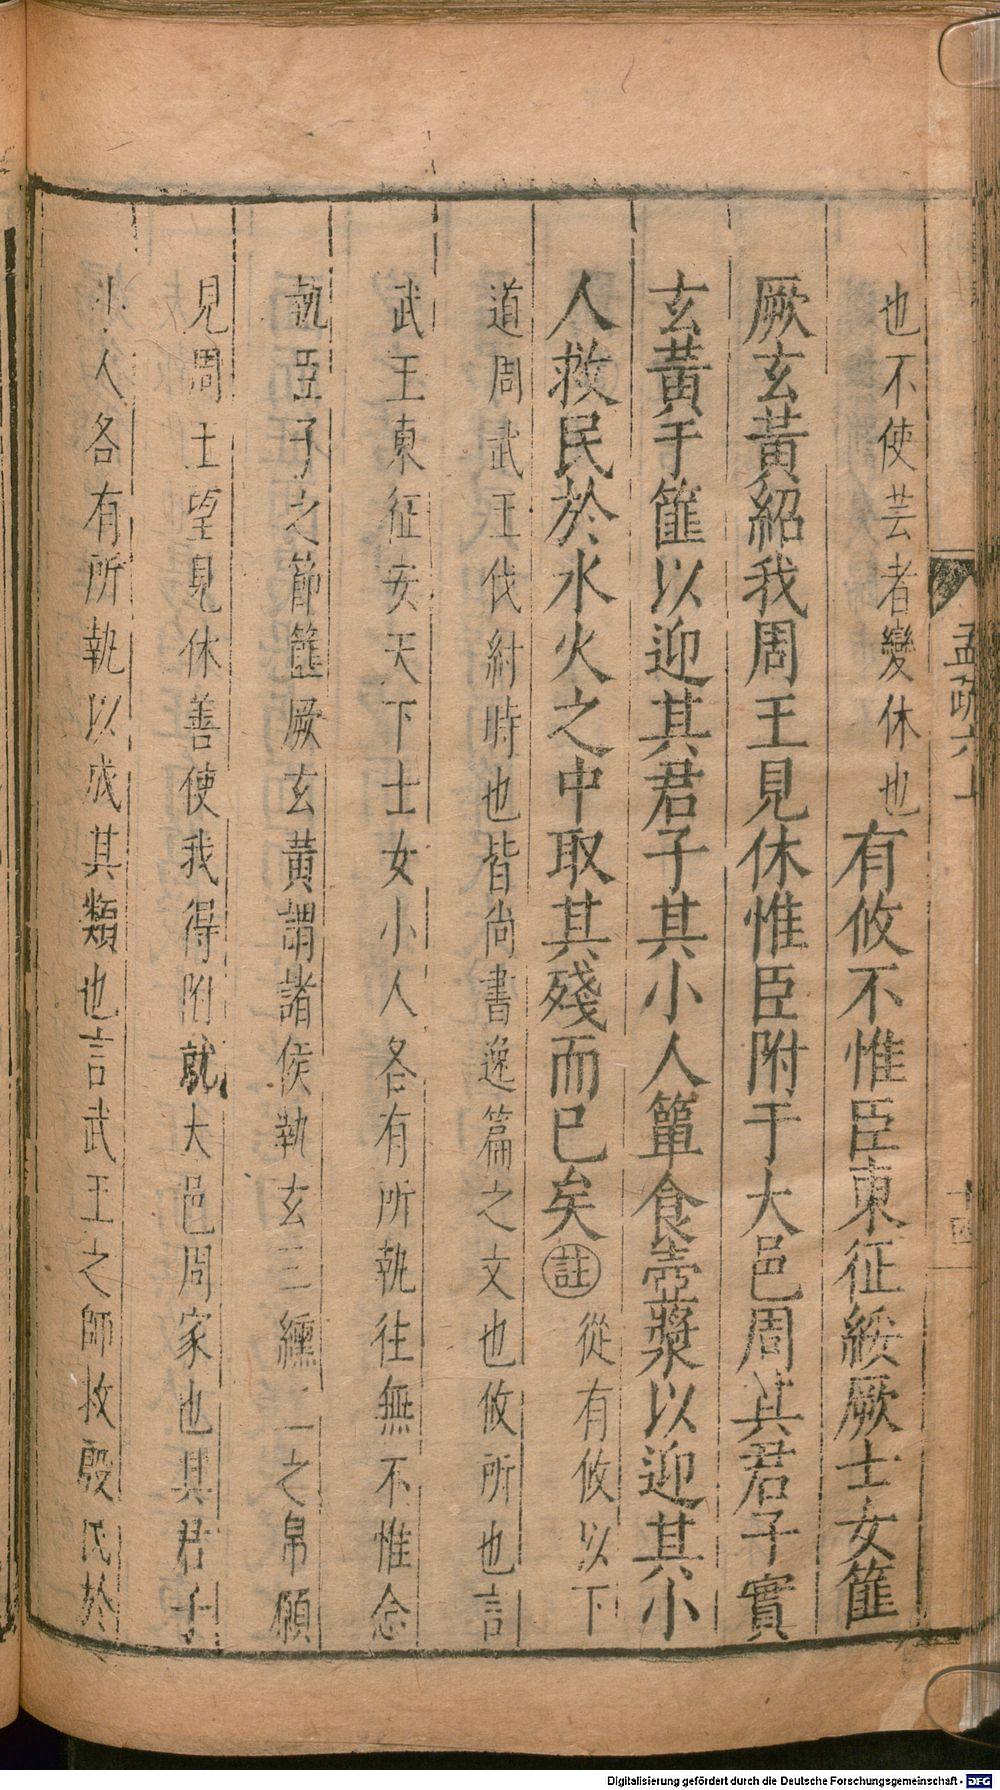 孟疏六上
十四
也不使芸者變休也有攸不惟臣東征綏厥士女篚
厥玄黃紹我周王見休惟臣附于大邑周其君子實
玄黃于篚以迎其君子其小人簞食壺漿以迎其小
人救民於水火之中取其殘而已矣註從有攸以下
道周武王伐紂時也皆尚書逸篇之文也攸所也言
武王東征安天下士女小人各有所執往無不惟念
執臣子之節篚厥玄黃謂諸侯執玄三纁二之帛願
見周士望見休善使我得附就大邑周家也其君子
小人各有所執以成其類也言武王之師救殷民於
Digitalisierung gefördert durch die Deutsche Forschungsgemeinschaft - DFG